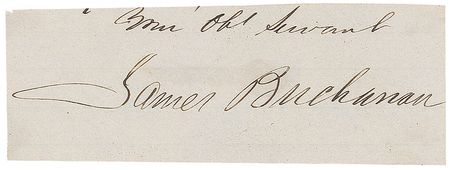 " Your Obt Servant
James Buchanan